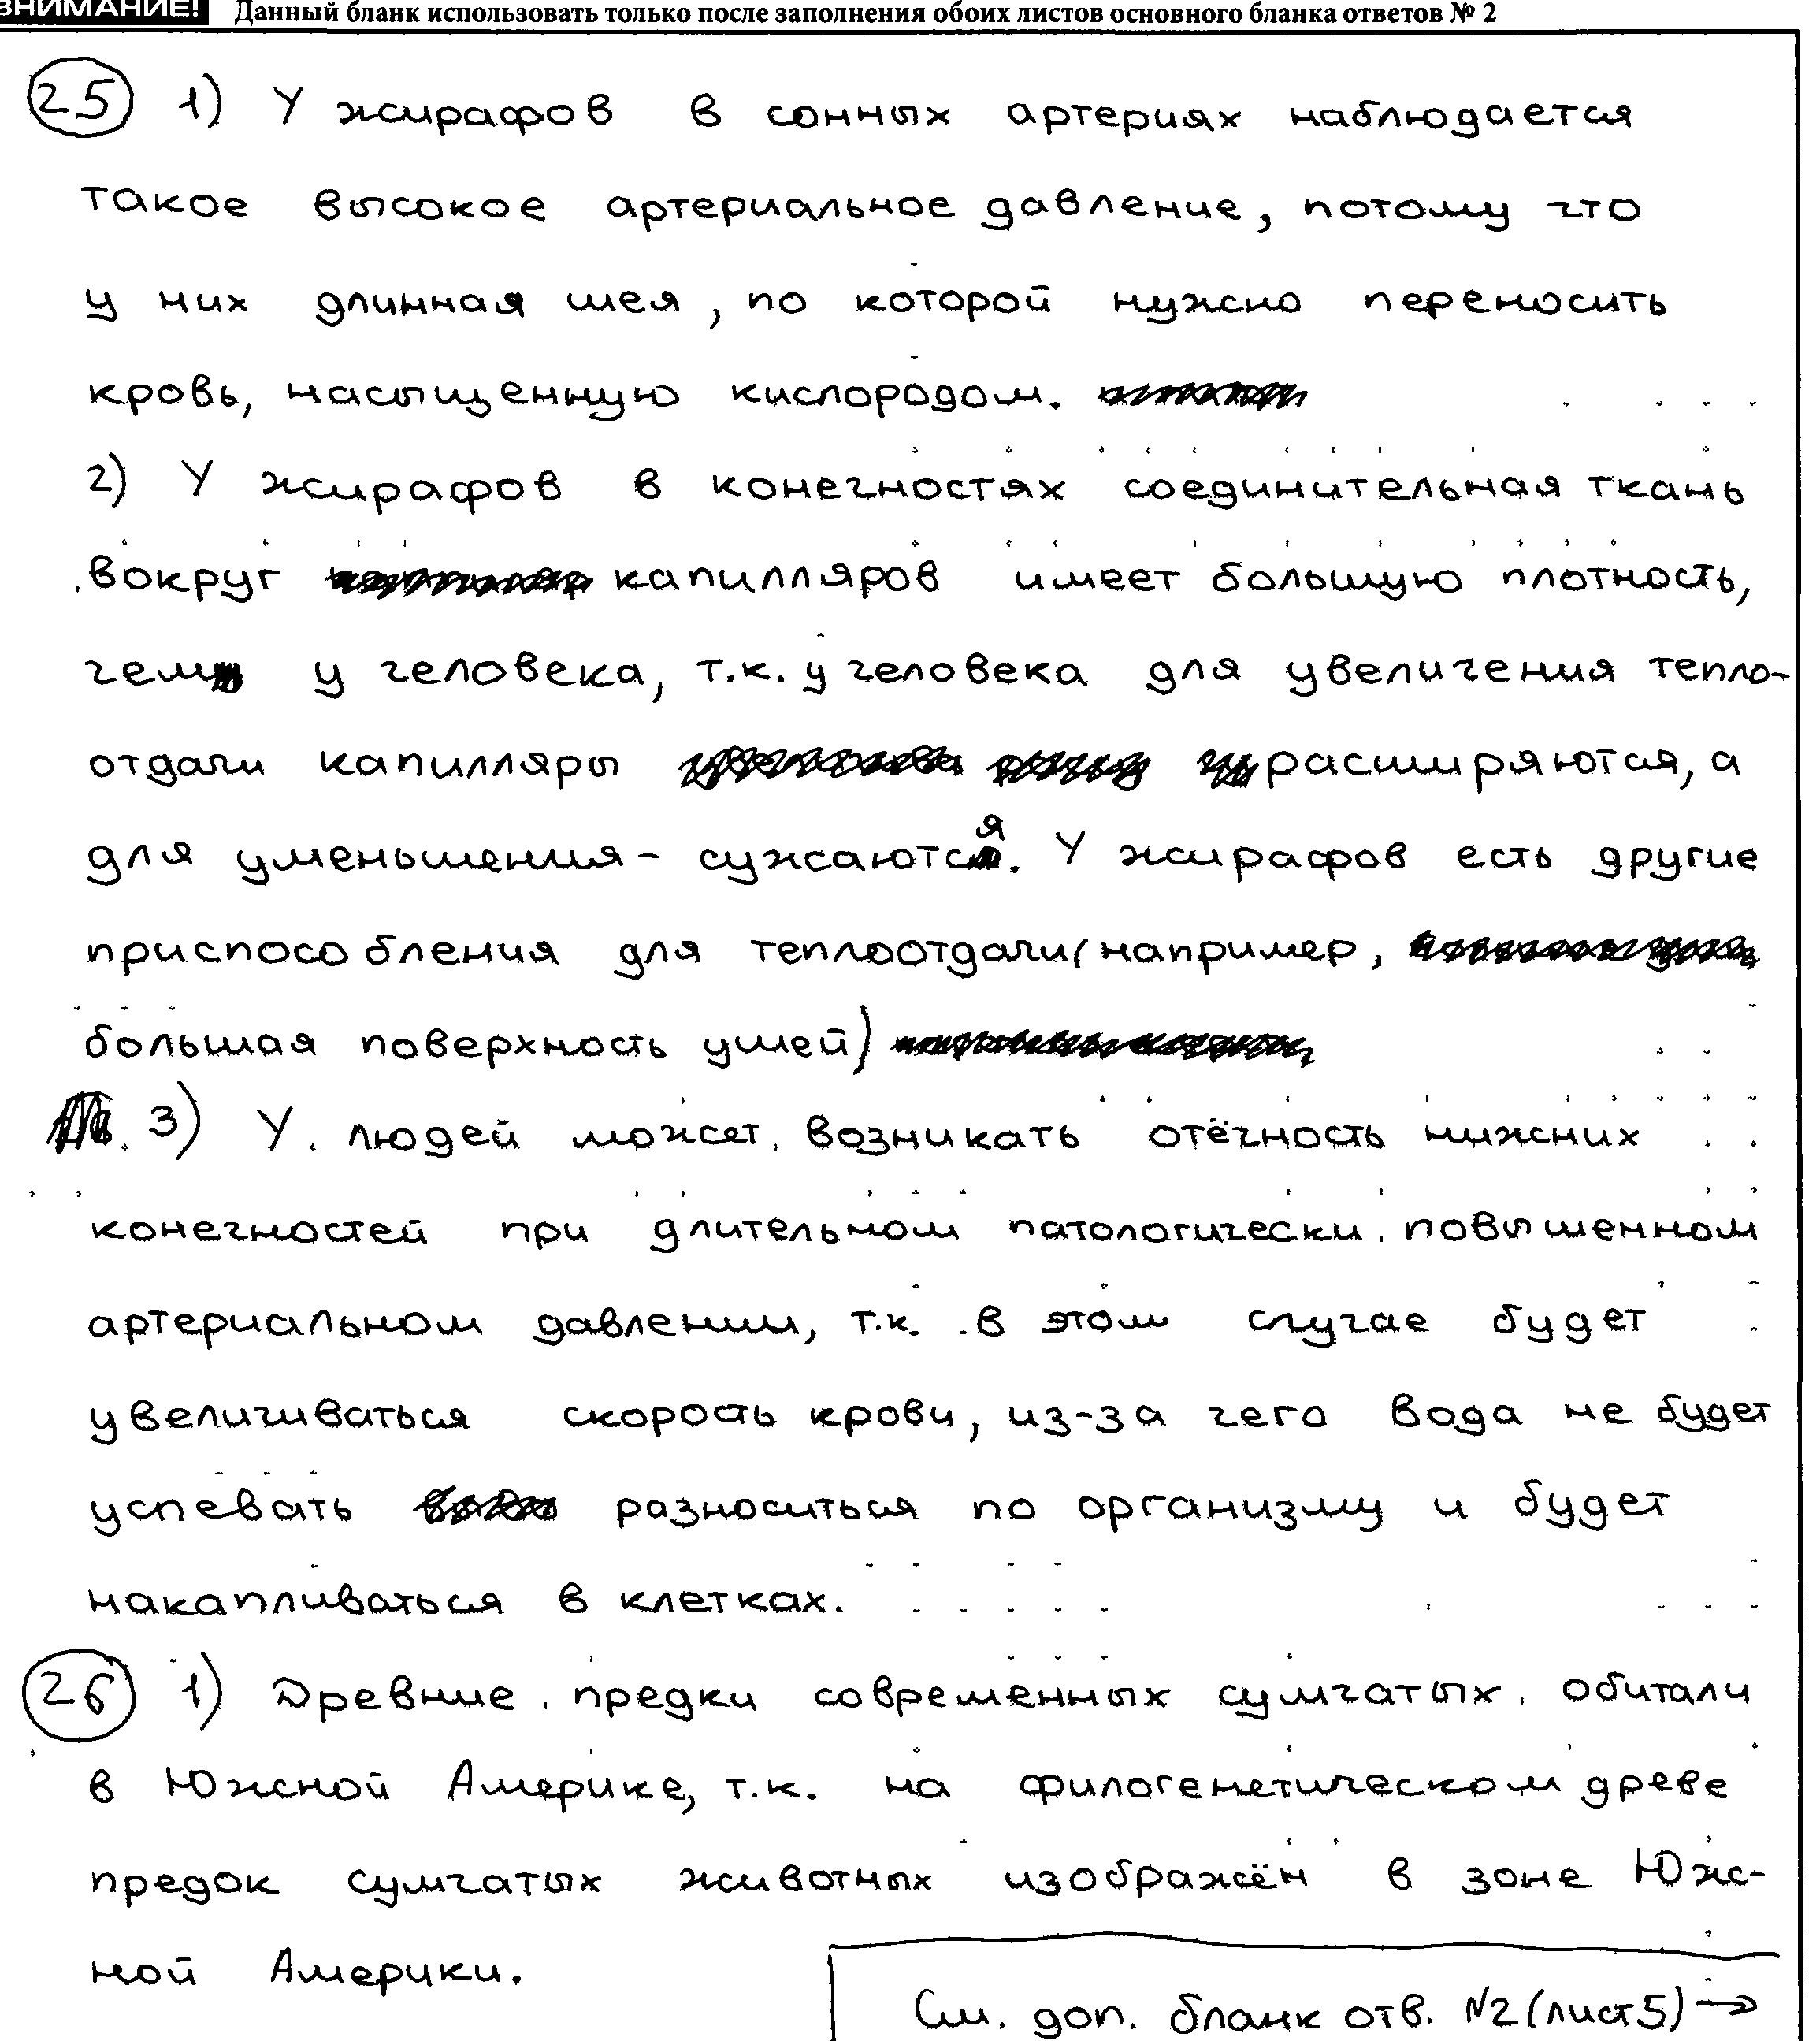 ВНИМАНИЕ! Данный бланк использовать только после заполнения обоих листов основного бланка ответов № 2
25 1) У жирафов в сонных артериях наблюдается
такое высокое артериальное давление, потому что
у них длинная шея, по которой нужно переносить
кровь, насыщенную кислородом.
2) У жирафов в конечностях соединительная ткань
вокруг капилляров имеет большую плотность,
чем у человека, т.к. у человека для увеличения тепло-
отдачи капилляры расширяются, а
для уменьшения - сужаются. У жирафов есть другие
приспособления для теплоотдачи (например,
большая поверхность ушей)
3) У людей может возникать отёчность нижних
конечностей при длительном патологически повышенном
артериальном давлении, т.к. в этом случае будет
увеличиваться скорость крови, из-за чего вода не будет
успевать разноситься по организму и будет
накапливаться в клетках.
26 1) Древние предки современных сумчатых обитали
в Южной Америке, т.к. на филогенетическом древе
предок сумчатых животных изображён в зоне Юж-
ной Америки.
См. доп. бланк отв. №2 (лист 5) →